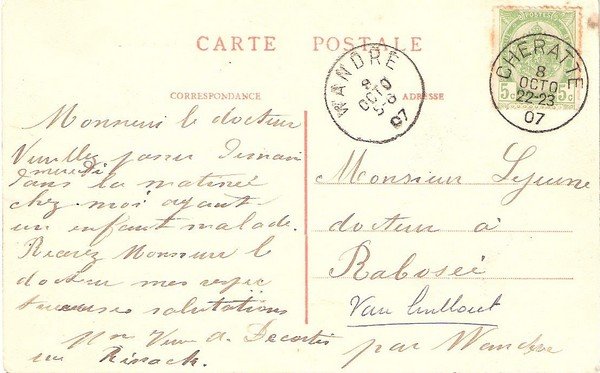 CARTE POSTALE
CORRESPONDANCE
ADRESSE
WANDRE
OCTO
07
CHERATTE
8
OCTO
22-23
07
5c 5c
Monsieur le docteur
Veuillez passer demain
mardi
dans la matinée
chez moi ayant
un enfant malade.
Recevez Monsieur le
docteur mes respec
tueuses salutations
Monsieur Lejeune
docteur à
Rabosée
par Wandre